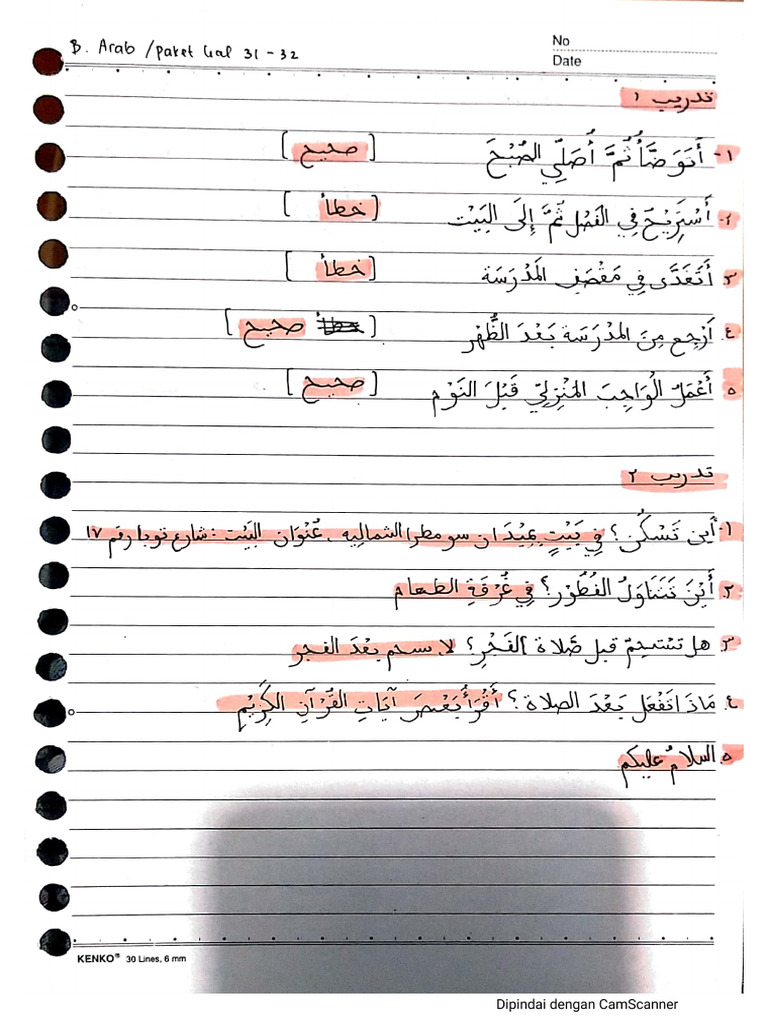 B. Arab / paket hal 31 - 32
No
Date
تدريب ١
١- أَتَوَضَّأُ ثُمَّ أُصَلِّي الصُّبْحَ [صحيح]
٢- أَسْتَرِيْحُ فِي الفَصْلِ ثُمَّ إِلَى البَيْتِ [خطأ]
٣- أَتَغَدَّى فِي مَقْصَفِ المَدْرَسَة [خطأ]
٤- أَرْجِع مِنَ المدْرَسَة بَعْدَ الظُّهْر [خطأ صحيح]
٥- أَعْمَلُ الْوَاجِبَ المَنْزِلِيّ قَبْلَ النَوْم [صحيح]
تدريب ٢
١- أَين تَسْكُن؟ فِي بَيْتٍ بِمِيْدَان سومطرا الشماليه. عُنْوَان البَيْت: شارع توبا رقم ١٧
٢- أَيْنَ تَتَنَاوَلُ الفُطُوْر؟ فِي غُرْفَةِ الطعام
٣- هل تستحِمّ قبل صَلاة الفَجْرِ؟ لا بَعْدَ الفجر
٤- مَاذَا تَفْعَل بَعْدَ الصلاة؟ أَقْرَأُ بَعْضَ آيَاتِ القُرْآنِ الكَرِيْمِ
٥- السلامُ عليكم
KENKO® 30 Lines, 6 mm
Dipindai dengan CamScanner